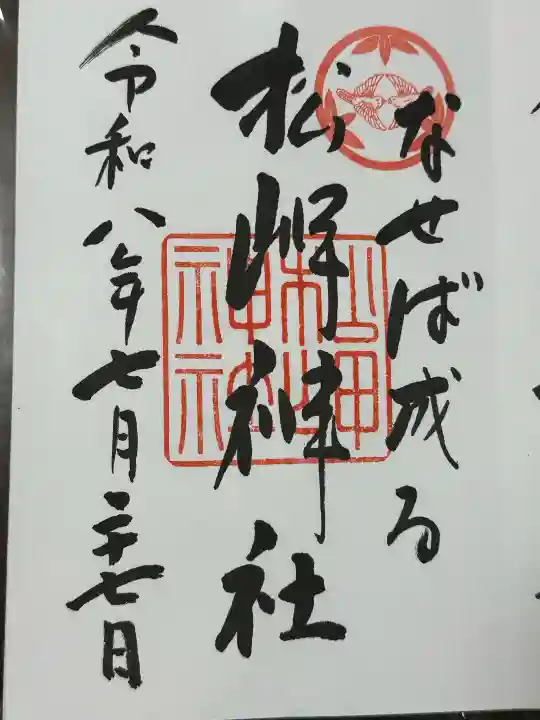 なせば成る
松岬神社
令和八年七月二十七日